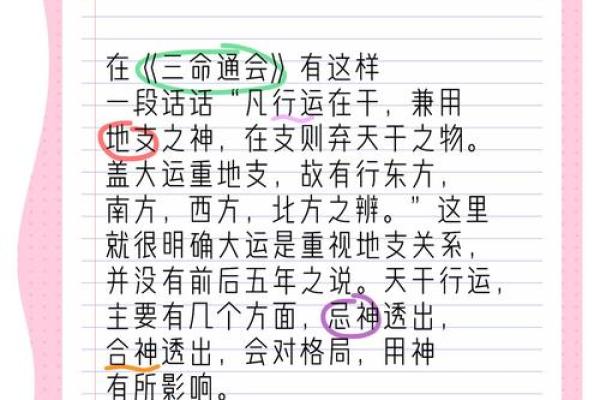 在《三命通会》有这样
一段话话“凡行运在干，兼用
地支之神，在支则弃天干之物。
盖大运重地支，故有行东方，
南方，西方，北方之辨。”这里
就很明确大运是重视地支关系，
并没有前后五年之说。天干行运，
主要有几个方面，忌神透出，
合神透出，会对格局，用神
有所影响。